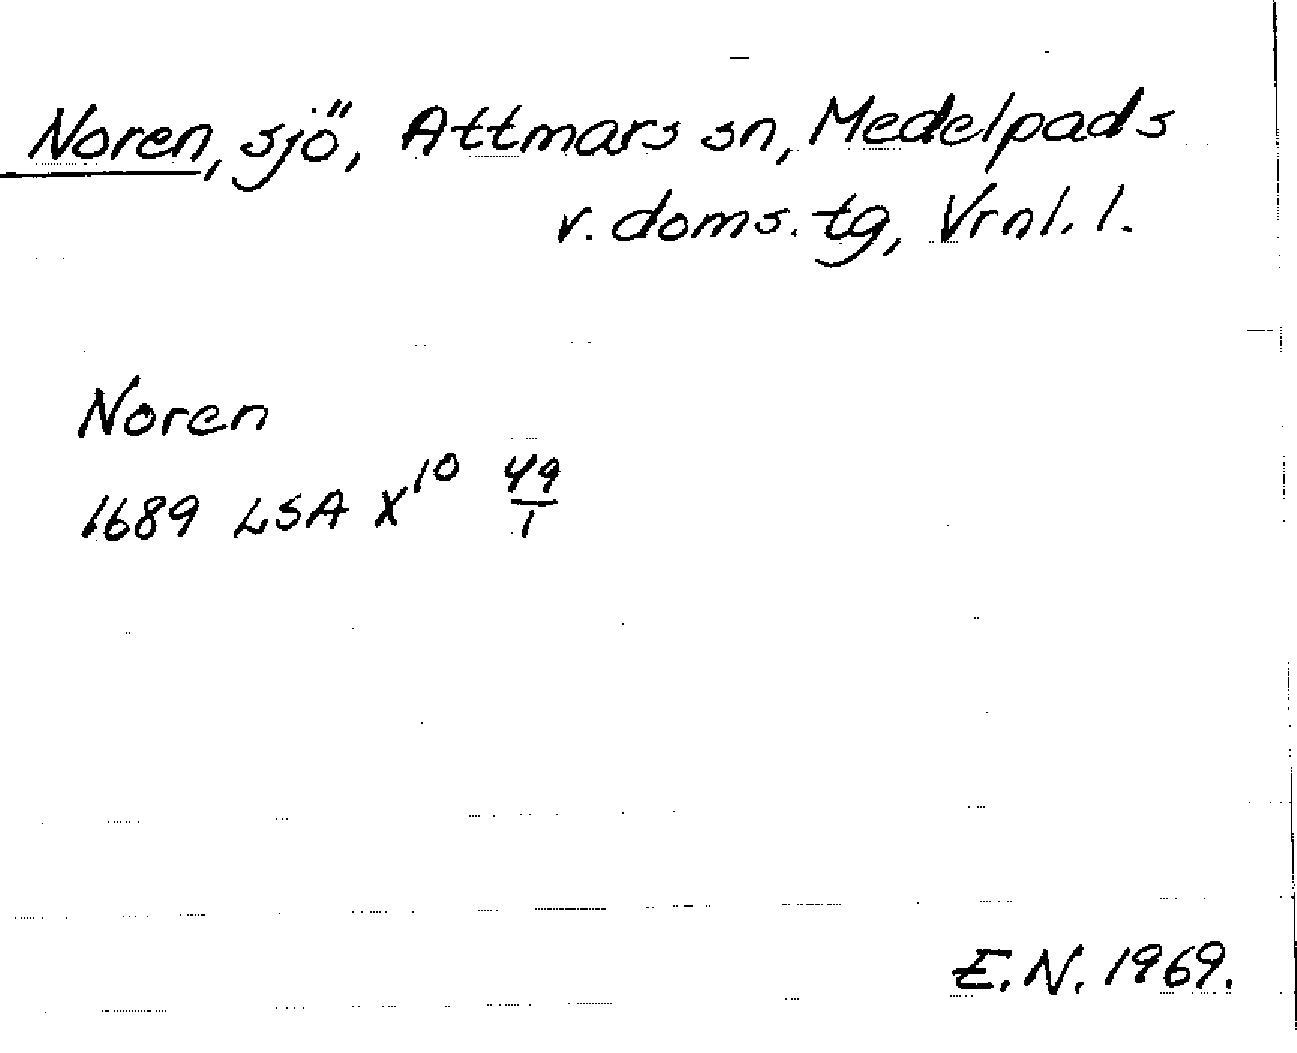 Noren, sjö, Attmars sn, Medelpads
v. doms. tg, Vrnl. l.
Noren
1689 LSA X¹⁰ 49/1
E.N. 1969.